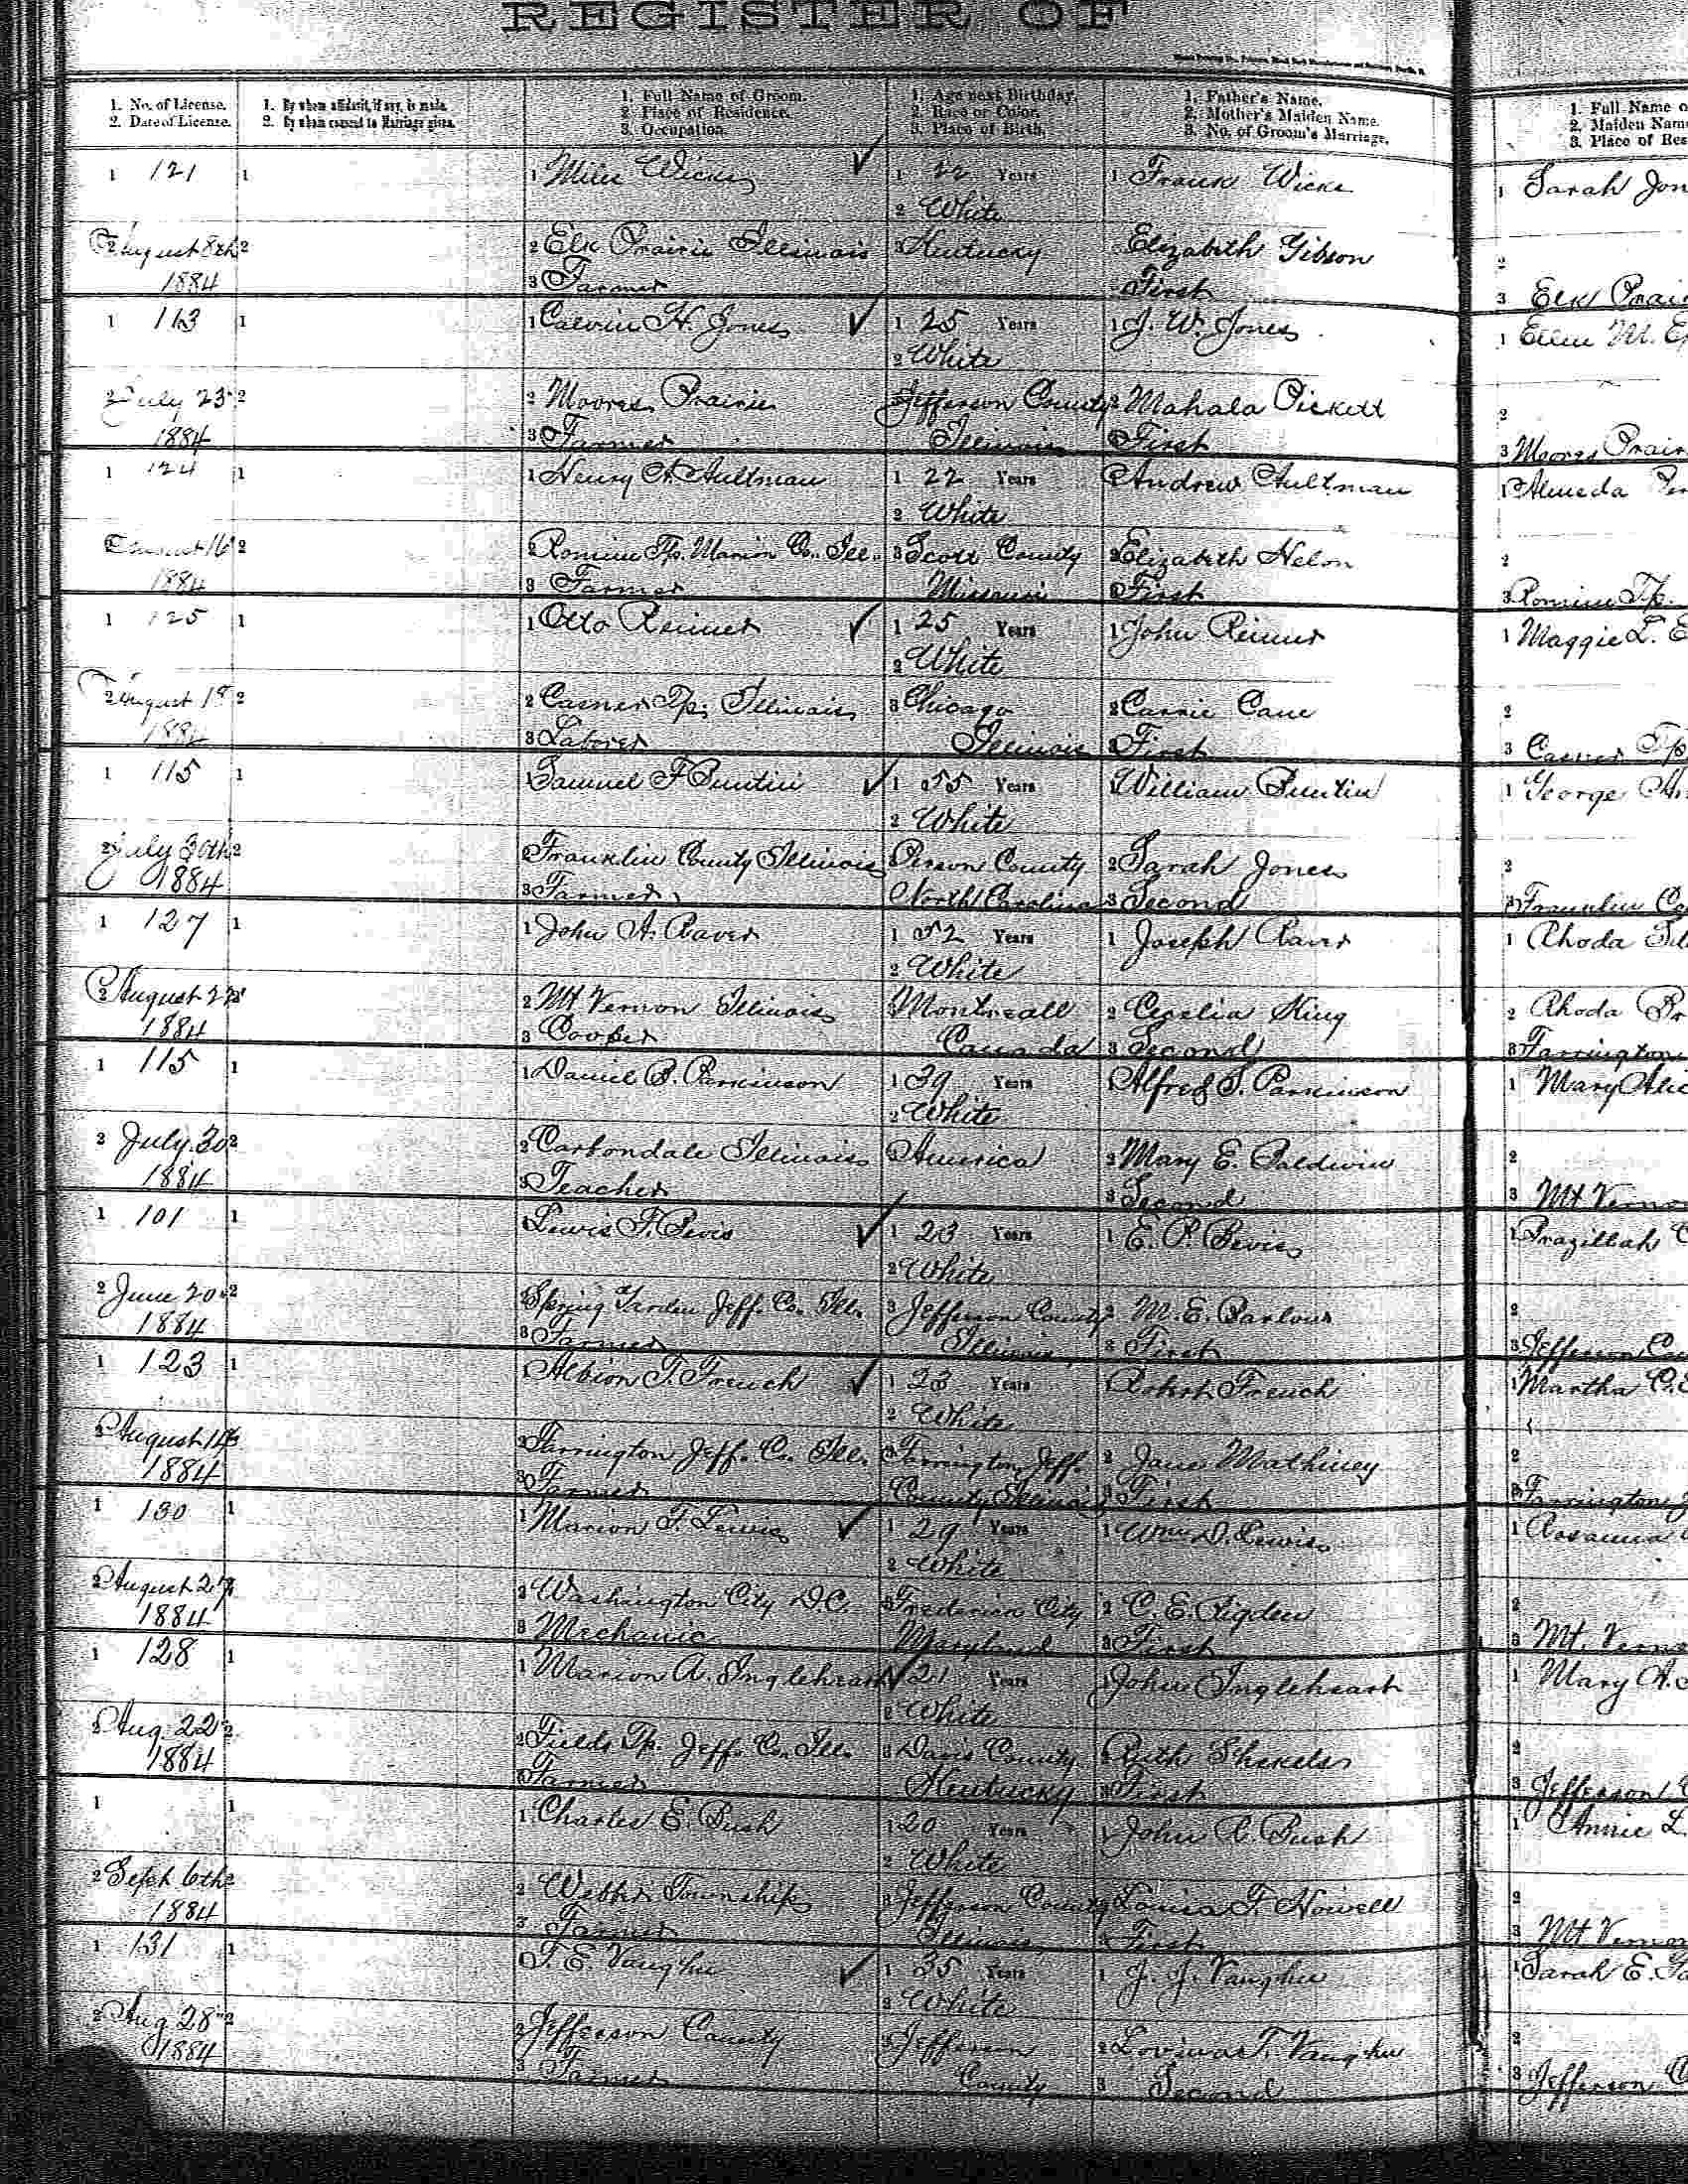 REGISTER OF
1. No. of License.
2. Date of License.
1. By whom affidavit, if any, is made.
2. By whom consent to Marriage given.
1. Full Name of Groom.
2. Place of Residence.
3. Occupation.
1. Age next Birthday.
2. Race or Color.
3. Place of Birth.
1. Father's Name.
2. Mother's Maiden Name.
3. No. of Groom's Marriage.
1. Full Name o
2. Maiden Nam
3. Place of Res
1 121 1 1 Wicks 1 22 Years 1 Frank Wicks 1 Sarah Jon
2 White
2 August 8th 2 2 Elk Prairie Illinois 3 Kentucky Elizabeth Gibson 2
1884 3 Farmer First 3 Elk Prai
1 113 1 1 Calvin H. Jones 1 25 Years 1 J. W. Jones 1 Ellen M. E
2 White
2 July 23 2 2 Moores Prairie Jefferson County 2 Mahala Pickett 2
1884 3 Farmer Illinois First 3 Moores Prair
1 124 1 1 Henry A. Aultman 1 22 Years Andrew Aultman 1 Almeda
2 White
August 16 2 2 Romine Tp. Marion Co. Ill. 3 Scott County 2 Elizabeth Nelson 2
1884 3 Farmer Missouri First 3 Romine Tp.
1 125 1 1 Otto Reiner 1 25 Years 1 John Reiner 1 Maggie L. E
2 White
2 August 18 2 2 Casner Tp. Illinois 3 Chicago 2 Carrie Cane 2
1884 3 Laborer Illinois First 3 Casner Tp
1 115 1 1 Samuel F Puntin 1 55 Years William Puntin 1 George An
2 White
2 July 30th 2 2 Franklin County Illinois Person County 2 Sarah Jones 2
1884 3 Farmer North Carolina 3 Second 3 Franklin Co
1 127 1 1 John A. Raver 1 52 Years 1 Joseph Raver 1 Rhoda
2 White
2 August 22 2 Mt Vernon Illinois Montreall 2 Cecelia King 2 Rhoda
1884 3 Cooper Canada 3 Second 3 Farrington
1 115 1 1 Daniel B. Parkinson 1 39 Years Alfred J. Parkinson 1 Mary Alic
2 White
2 July 30 2 2 Carbondale Illinois America 2 Mary E. Baldwin 2
1884 3 Teacher 3 Second 3 Mt Verno
1 101 1 Lewis F. Bevis 1 23 Years 1 E. P. Bevis
2 White
2 June 20 2 2 Spring Garden Jeff. Co. Ill. 3 Jefferson County 2 M. E. Barlow 2
1884 3 Farmer Illinois 3 First 3 Jefferson Co
1 123 1 Albion F. French 1 23 Years Robert French 1 Martha C.
2 White
2 August 14 2 Farrington Jeff. Co. Ill. Farrington Jeff. 2 Jane Mathiney 2
1884 3 Farmer County Illinois First 3 Farrington J
1 130 1 1 Marion F. Lewis 1 29 Years 1 Wm D. Lewis 1 Rosanna
2 White
2 August 27 2 Washington City D.C. Frederick City 2 C. E. Rigden 2
1884 3 Mechanic Maryland 3 First 3 Mt. Verno
1 128 1 1 Marion A. Inglehart 21 Years John Ingleheart 1 Mary A.
2 White
2 Aug 22 2 2 Fields Tp. Jeff. Co. Ill. 3 Davis County Ruth 2
1884 Farmer Kentucky 3 First 3 Jefferson
1 1 1 Charles E. Bush 1 20 Years 1 John R. Bush 1 Annie L.
2 White
2 Sept 6th 2 2 Webber Township 3 Jefferson County Louisa F. Howell 2
1884 3 Farmer Illinois First 3 Mt Vernon
1 131 1 T. E. Vaughn 1 35 Years 1 J. J. Vaughn 1 Sarah E.
2 White
2 Aug 28 2 2 Jefferson County 3 Jefferson 2 Vaughn 2
1884 3 Farmer County 3 Second 3 Jefferson C